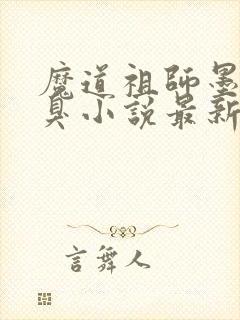 魔道祖師墨
臭小說最新
言舞人